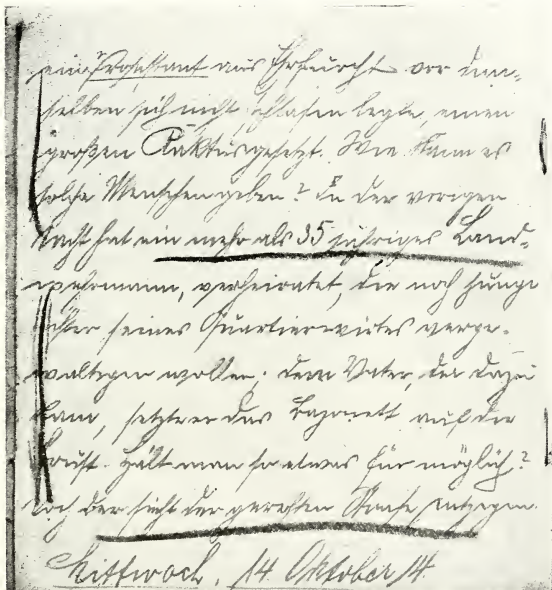 ein Protestant aus Ehrfurcht vor dem-
selben sich nicht schlafen legte, einen
großen Kaktus gesetzt. Wie kann es
solche Menschen geben? In der vorigen
Nacht hat ein mehr als 35 jähriges Land-
wehrmann, verheiratet, die noch junge
Tochter seines Quartierwirtes verge-
waltigen wollen; dem Vater, der dazu
kam, setzte er das Bayonett auf die
Brust. Hält man so etwas für möglich?
Doch der sieht der gerechten Strafe entgegen.
Mittwoch, 14. Oktober 14.